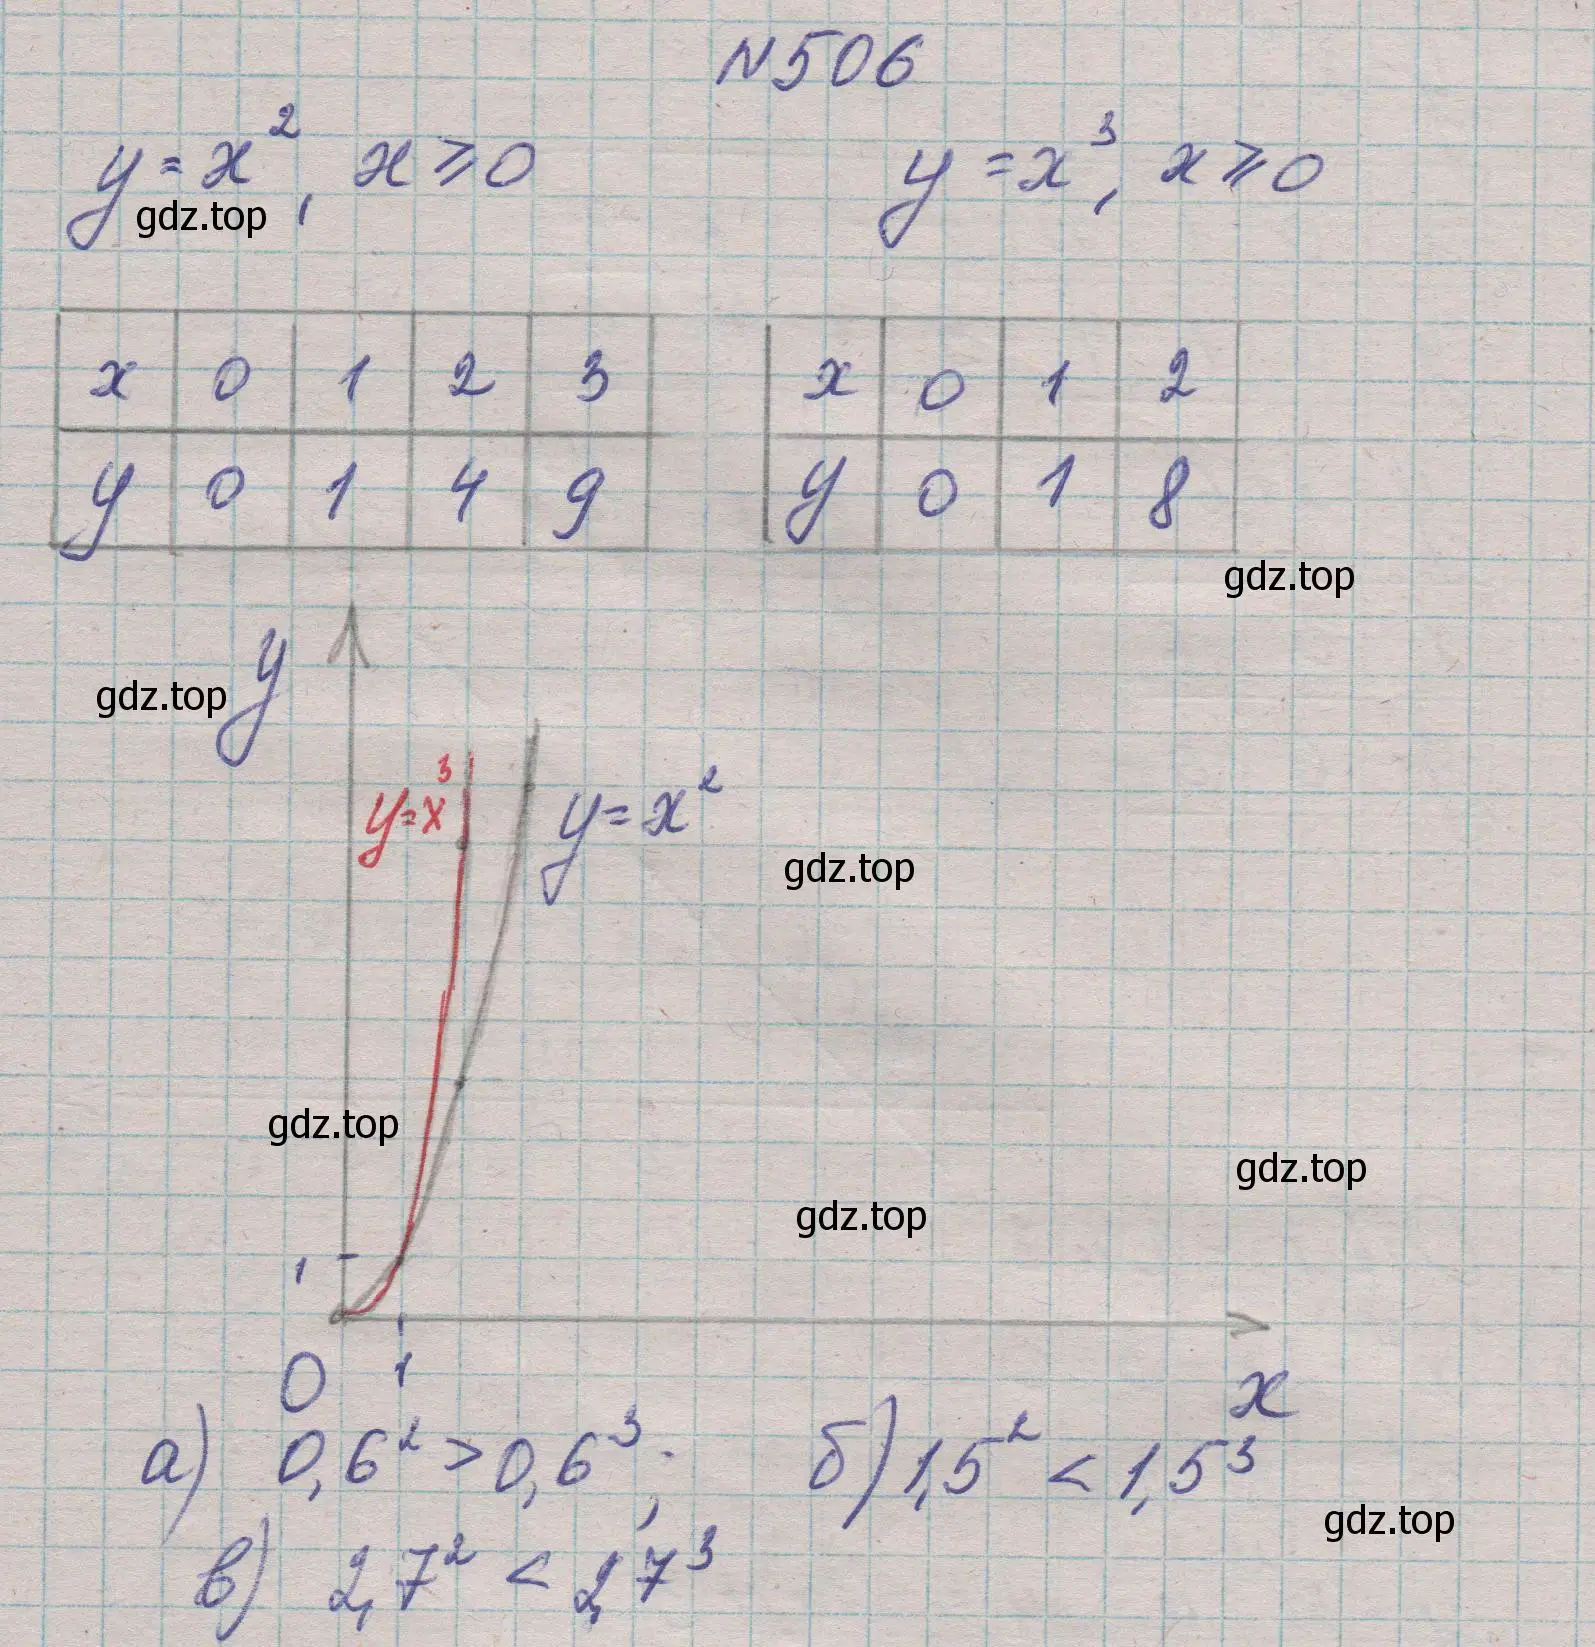 N506
y = x², x ≥ 0   y = x³, x ≥ 0
gdz.top
x 0 1 2 3   x 0 1 2
y 0 1 4 9   y 0 1 8
gdz.top
y
gdz.top
y=x³   y = x²
gdz.top
gdz.top
gdz.top
gdz.top
1
0 1 x
а) 0,6² > 0,6³;   б) 1,5² < 1,5³
gdz.top
в) 2,7² < 2,7³